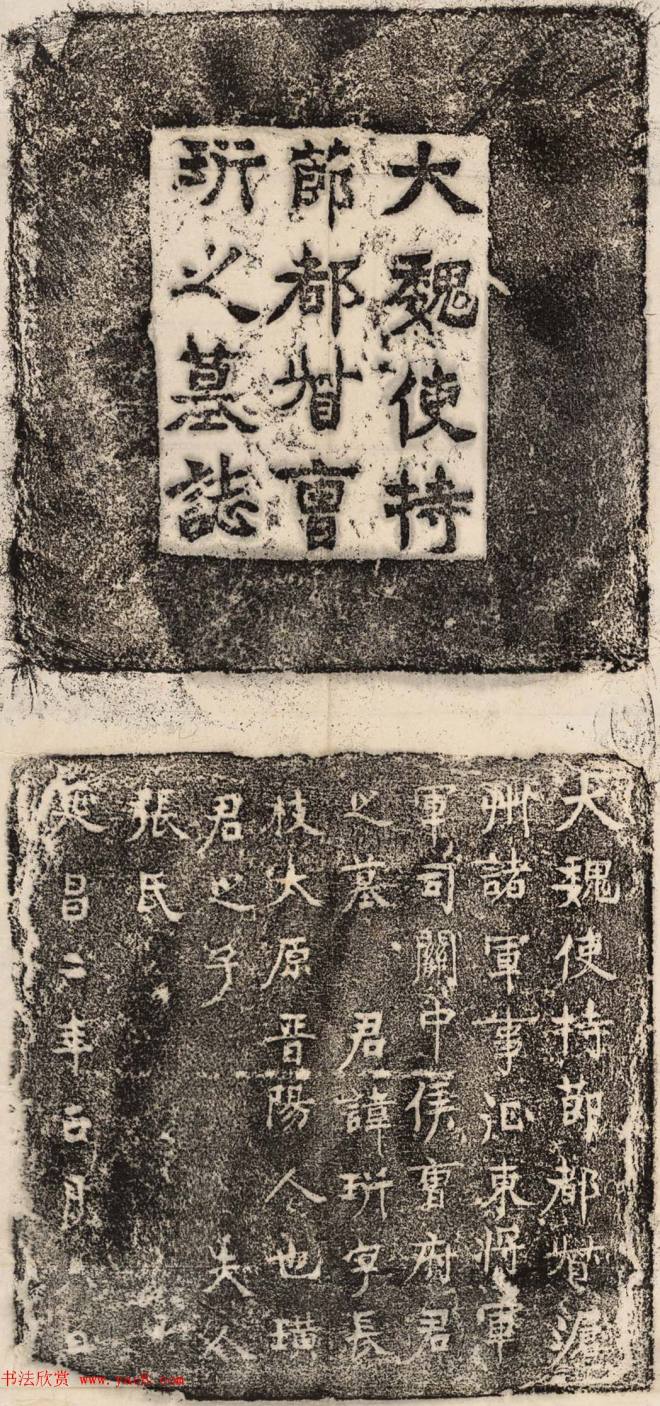 大魏使持
節都督曹
玡之墓誌
大魏使持節都督滄
州諸軍事征東將軍
軍司關中侯曹府君
之墓 君諱玡字長
枝大原晋陽人也璜
君之子 夫人
張氏
延昌二年 月 日
书法欣赏 www.yac8.com